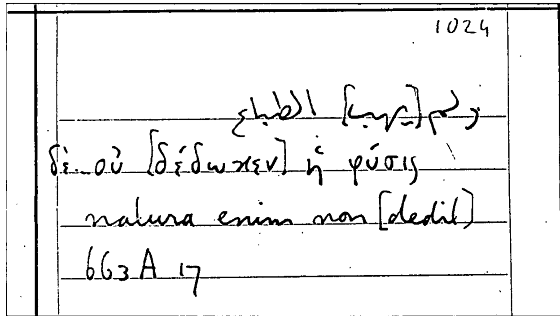 1024
ولم [يهب] الطباع
δὲ...οὐ [δέδωκεν] ἡ φύσις
natura enim non [dedit]
663A 17